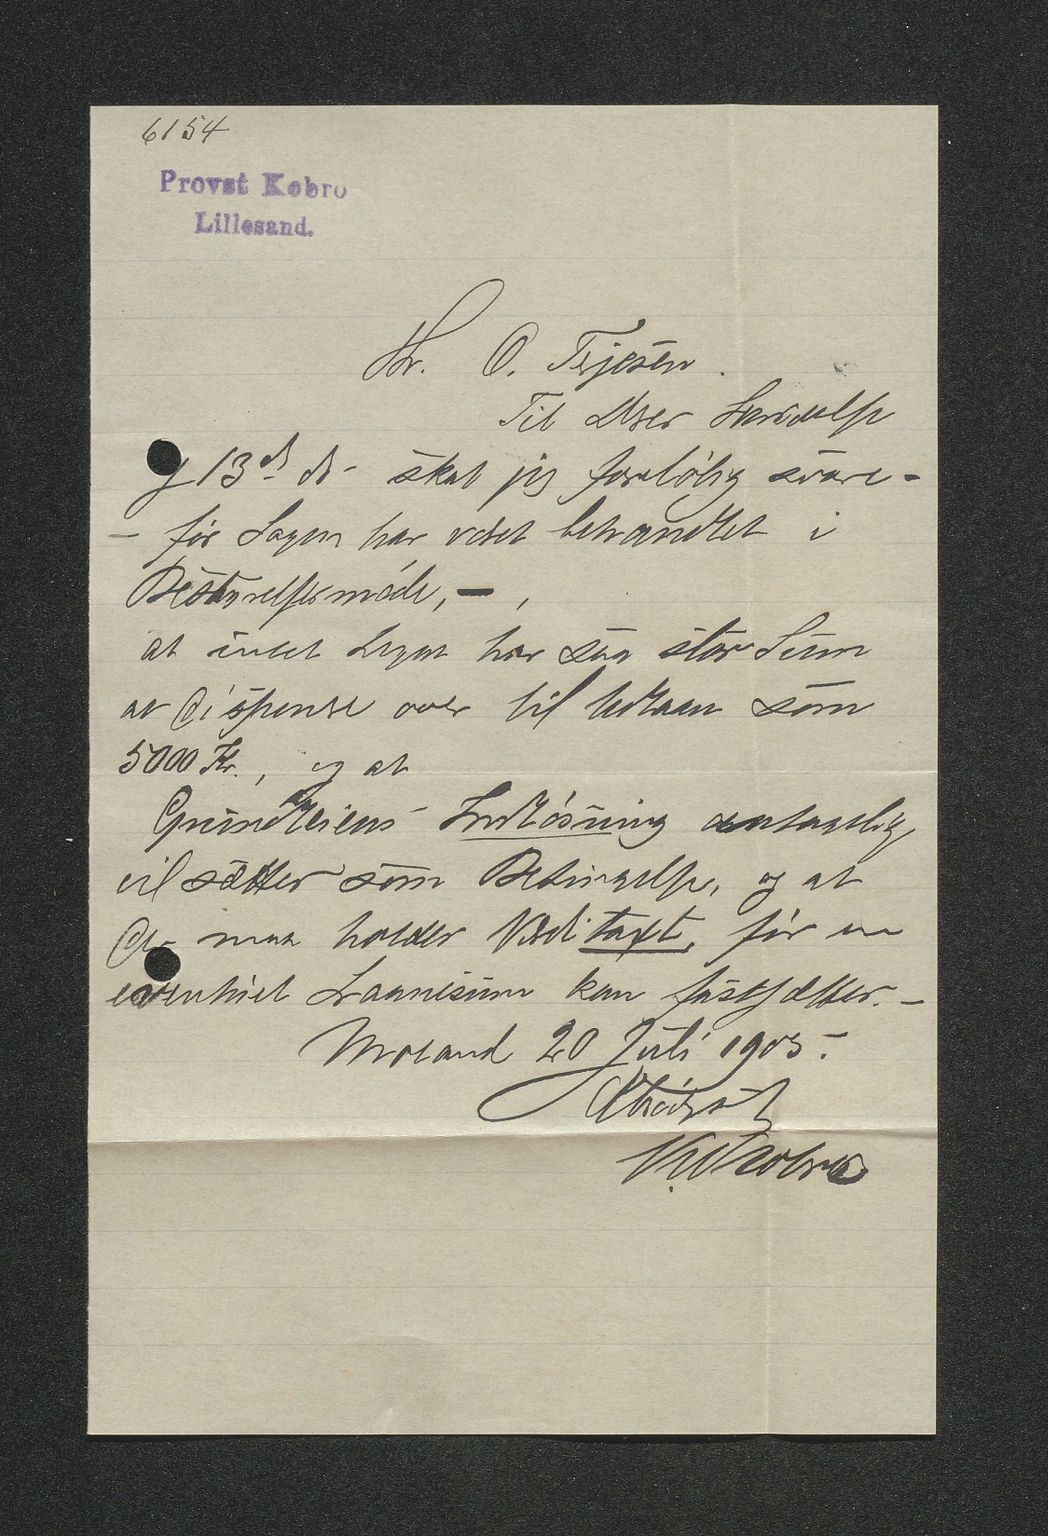 6154
Provst Kobro
Lillesand.
Hr. O. Terjesen.
Til Deres
13de ds skal jeg foreløbig svare -
- før Sagen har været behandlet i
Bestyrelsesmøde, -,
at intet Legat har saa stor Sum
at dispensere over til Udlaan som
5000 Kr., og at
Grundleiens Indløsning antagelig
vil sættes som Betingelse, og at
De maa holde Verditaxt, før en
eventuel Laanesum kan fastsættes. -
Moland 20 Juli 1905.
Ærbødigst
Kobro